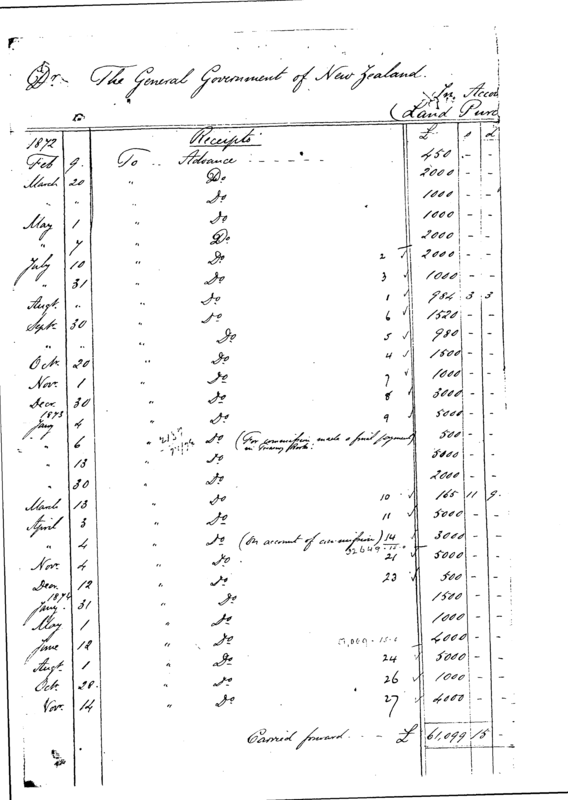 Dr. The General Government of New Zealand.
In Accou
(Land Purc
1872 Receipts £ s £
Feb 9. To Advance 450 - -
March 20 " Do 2000 - -
" " " Do 1000 - -
May 1 " Do 1000 - -
" 7 " Do 2000 - -
July 10 " Do 2 ✓ 2000 - -
" 31 " Do 3 ✓ 1000 - -
Augt. " " Do 1 ✓ 984 3 3
Sept. 30 " Do 6 ✓ 1520 - -
" " Do 5 ✓ 980 - -
Oct. 20 " Do 4 ✓ 1500 - -
Nov. 1 " Do 7 ✓ 1000 - -
Decr. 30 " Do 8 ✓ 3000 - -
1873
Jany 4 " Do 9 ✓ 5000 - -
" 6 " Do (For commission made a final payment in Treasury Books. 500 - -
" 13 " Do 5000 - -
" 30 " Do 2000 - -
March 13 " Do 10 ✓ 165 11 9
April 3 " Do 11 ✓ 5000 - -
" 4 " Do (On account of commission) 14 ✓ 3000 - -
32649
Nov. 4 " Do 21 ✓ 5000 - -
Decr. 12 " Do 23 ✓ 500 - -
1874
Jany. 31 " Do 1500 - -
May 1 " Do 1000 - -
June 12 " Do 4000 - -
Augt. 1 " Do 24 ✓ 5000 - -
Oct. 28. " Do 26 ✓ 1000 - -
Nov. 14 " Do 27 ✓ 4000 - -
Carried forward £ 61,099 15 -